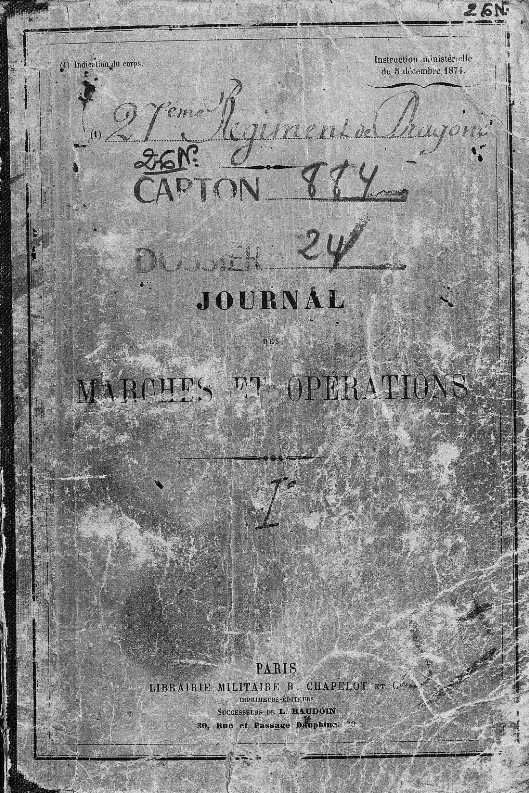 26N.
(1) Indication du corps.
Instruction ministérielle
du 5 décembre 1874.
(1) 27ème Régiment de Dragons
26N.
CARTON 884
DOSSIER 24
JOURNAL
DES
MARCHES ET OPÉRATIONS
I
PARIS
LIBRAIRIE MILITAIRE R. CHAPELOT ET Cie
IMPRIMEURS-ÉDITEURS
SUCCESSEURS DE L. BAUDOIN
30, Rue et Passage Dauphine, 30